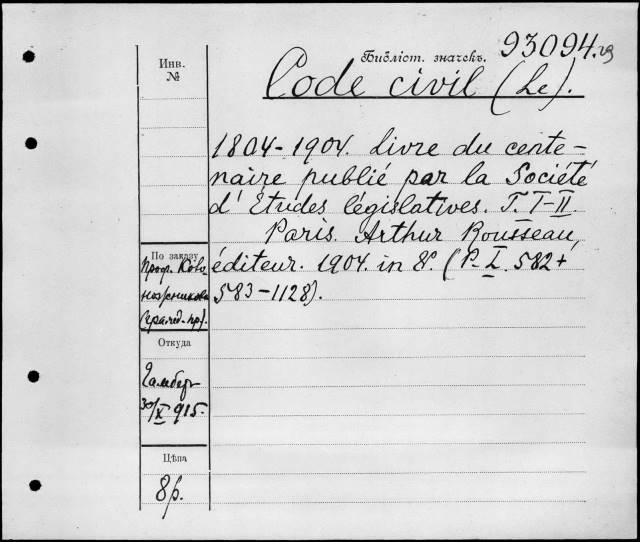 Инв.
№
Библіот. значекъ. 93094.
Code civil (Le).
1804-1904. Livre du cente-
naire publié par la Société
d'Etudes législatives. T. I-II
Paris. Arthur Rousseau,
éditeur. 1904. in 8°. (P. L. 582 +
583-1128).
По заказу
Проф.
Откуда
30/X 915.
Цѣна
8р.